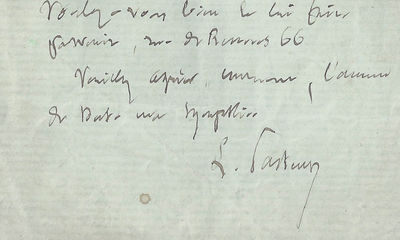 Voulez-vous bien le lui faire
parvenir, rue de Rennes 66
Veuillez agréer, monsieur, l'assurance
de toute ma sympathie.
L. Pasteur